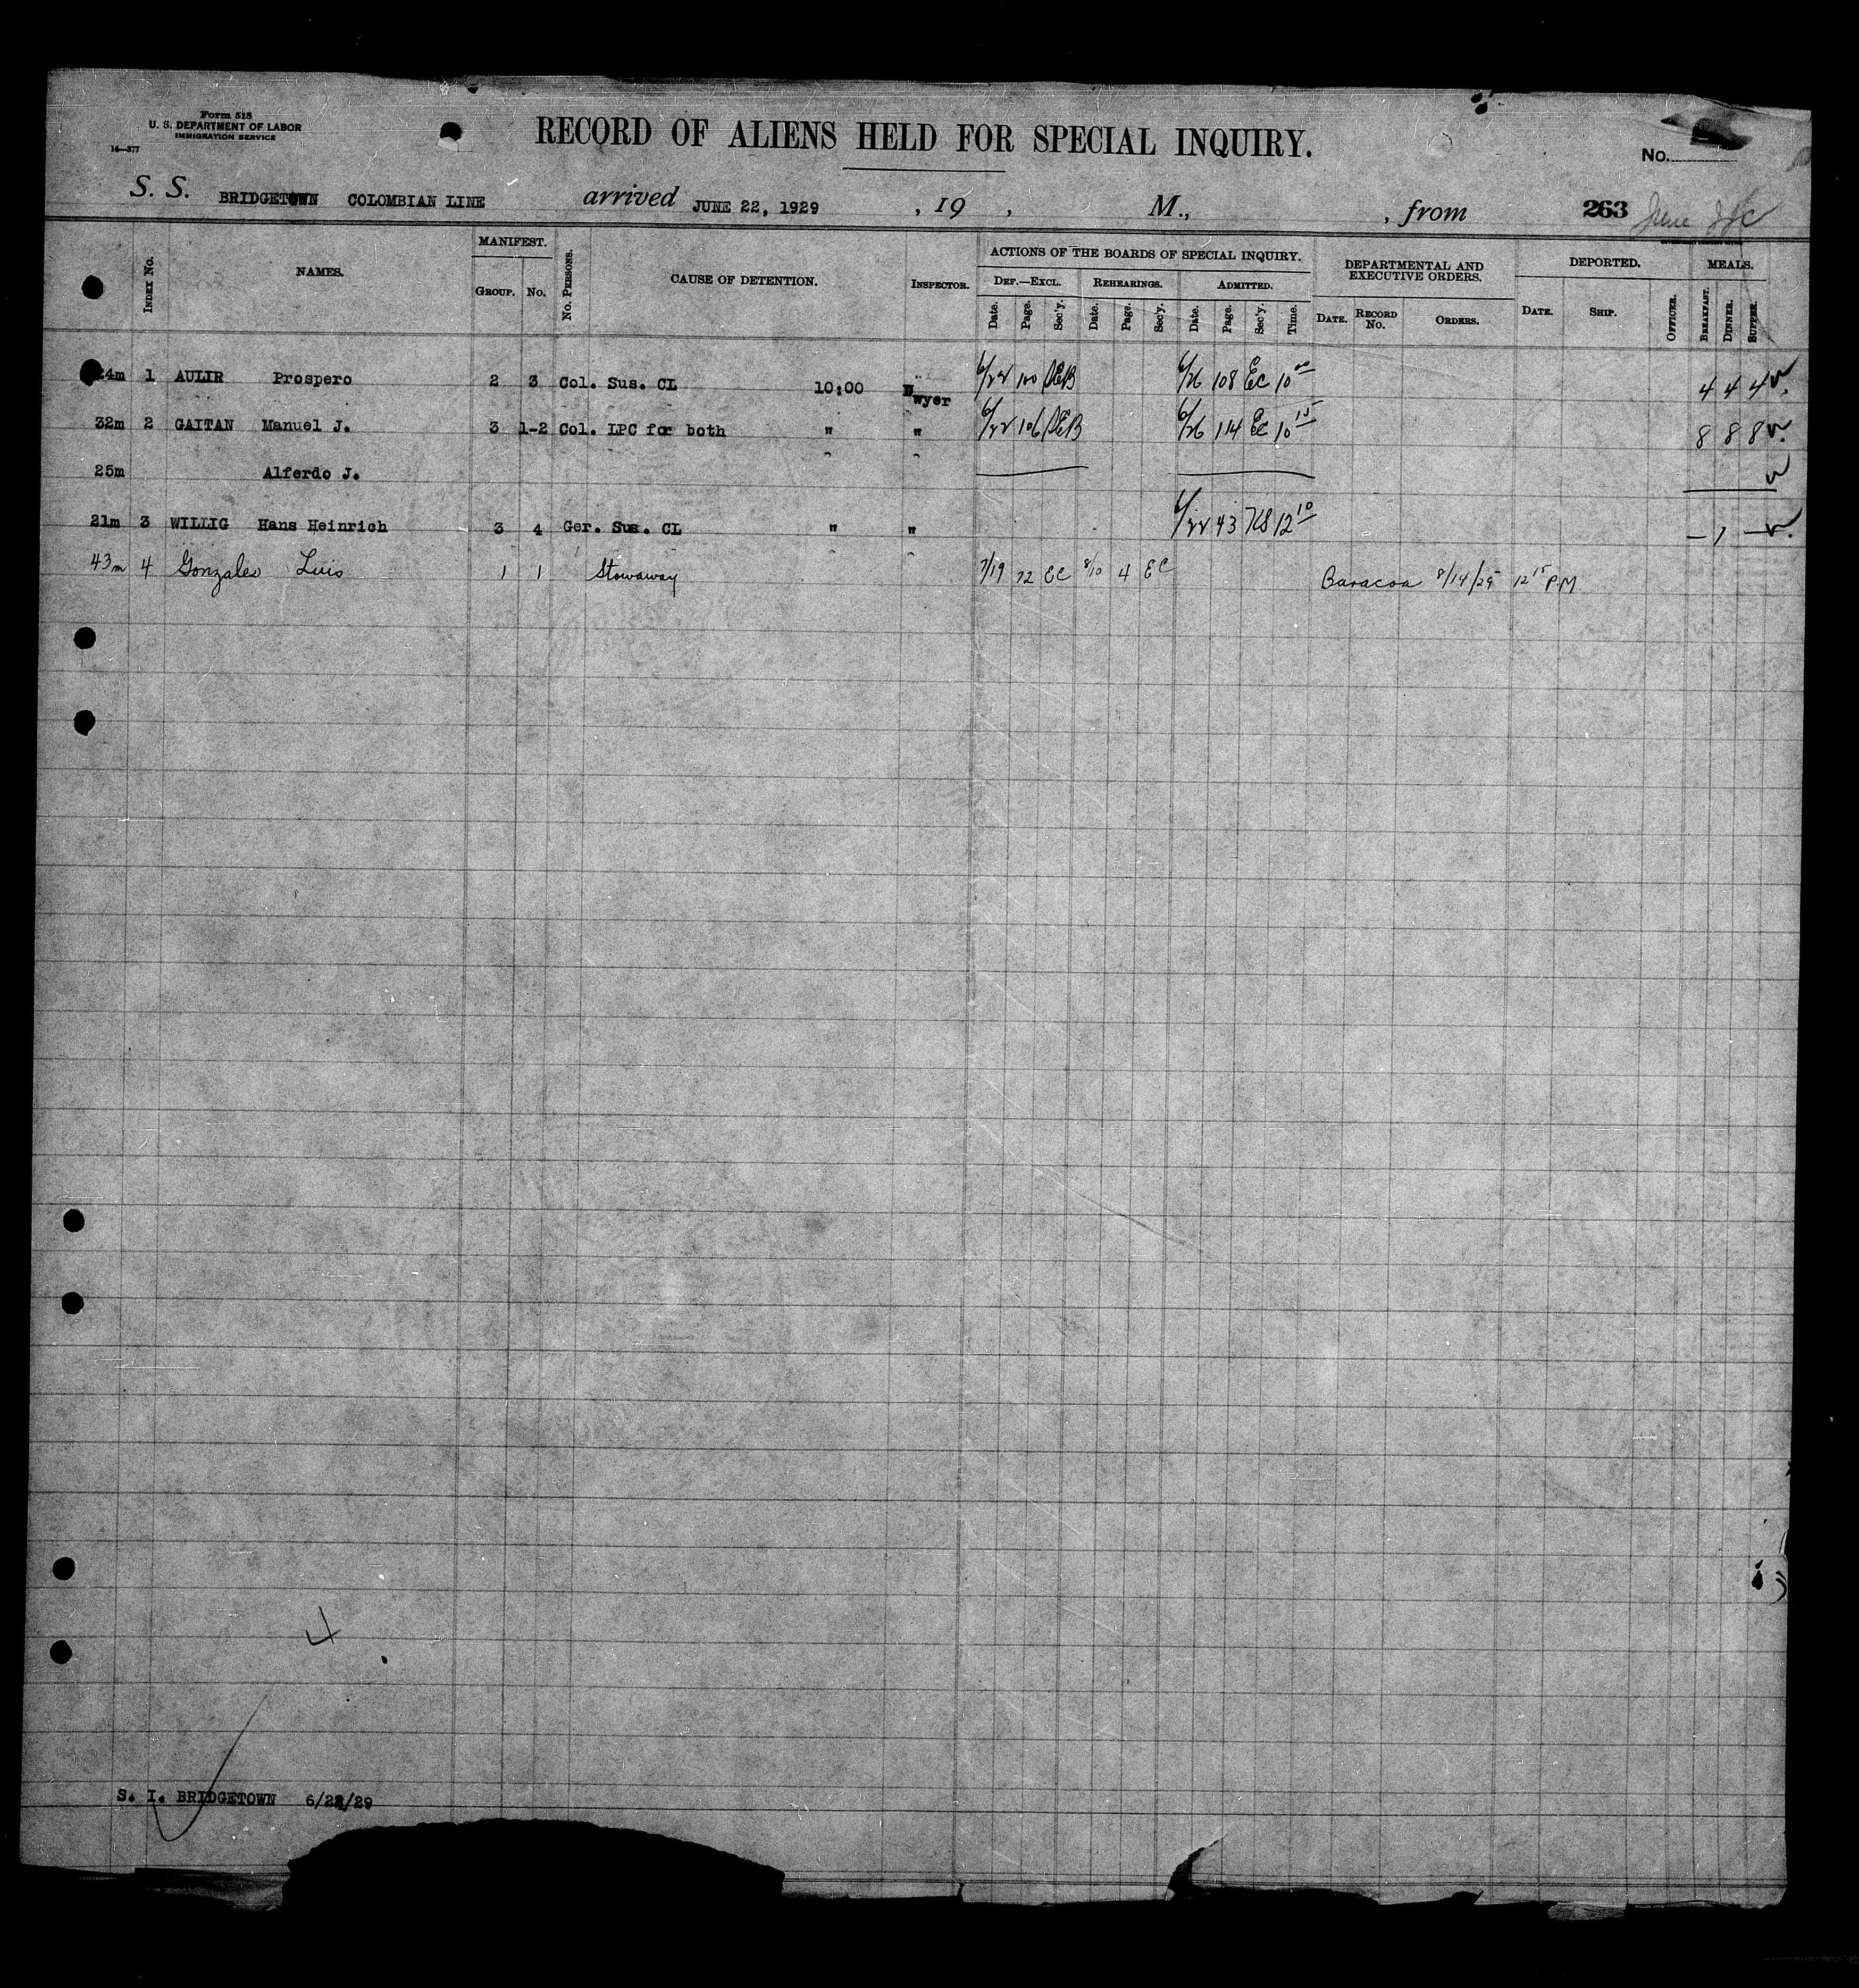 Form 518
U. S. DEPARTMENT OF LABOR
IMMIGRATION SERVICE
14—377
RECORD OF ALIENS HELD FOR SPECIAL INQUIRY.
No.
S. S. BRIDGETOWN COLOMBIAN LINE arrived JUNE 22, 1929 , 19 , M., , from 263 June
INDEX No. NAMES. MANIFEST. GROUP. No. No. PERSONS. CAUSE OF DETENTION. INSPECTOR. ACTIONS OF THE BOARDS OF SPECIAL INQUIRY. DEF.—EXCL. Date. Page. Sec'y. REHEARINGS. Date. Page. Sec'y. ADMITTED. Date. Page. Sec'y. Time. DEPARTMENTAL AND EXECUTIVE ORDERS. DATE. RECORD No. ORDERS. DEPORTED. DATE. SHIP. OFFICER. MEALS. BREAKFAST. DINNER. SUPPER.
24m 1 AULIR Prospero 2 3 Col. Sus. CL 10:00 Dwyer 6/22 100 6/26 108 EC 10 00 4 4 4
32m 2 GAITAN Manuel J. 3 1-2 Col. LPC for both " " 6/22 106 6/26 114 EC 10 15 8 8 8
25m Alferdo J.
21m 3 WILLIG Hans Heinrich 3 4 Ger. Sus. CL " " 6/22 43 12 10 — 1 —
43m 4 Gonzales Luis 1 1 Stowaway 7/19 72 EC 8/10 4 EC Baracoa 8/14/29 12 15 P.M
S. I. BRIDGETOWN 6/22/29